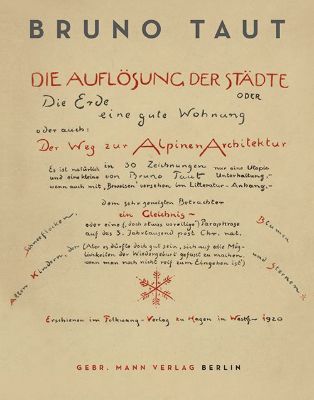 BRUNO TAUT
DIE AUFLÖSUNG DER STÄDTE
ODER
Die Erde
eine gute Wohnung
oder auch:
Der Weg zur Alpinen Architektur
Es ist natürlich in 30 Zeichnungen nur eine Utopie
und eine kleine von Bruno Taut Unterhaltung,–
wenn auch mit „Beweisen" versehen im Litteratur–Anhang.–
dem sehr geneigten Betrachter
ein Gleichnis –
oder eine (, doch etwas voreilige) Paraphrase
auf das 3. Jahrtausend post Chr. nat.
(Aber es dürfte doch gut sein, sich auf alle Mög-
lichkeiten der Wiedergeburt gefasst zu machen.
wenn man noch nicht reif zum Eingehen ist)
Allen Kindern, den Schneeflocken,
Blumen und Sternen
Erschienen im Folkwang–Verlag zu Hagen in Westf. – 1920
GEBR. MANN VERLAG BERLIN